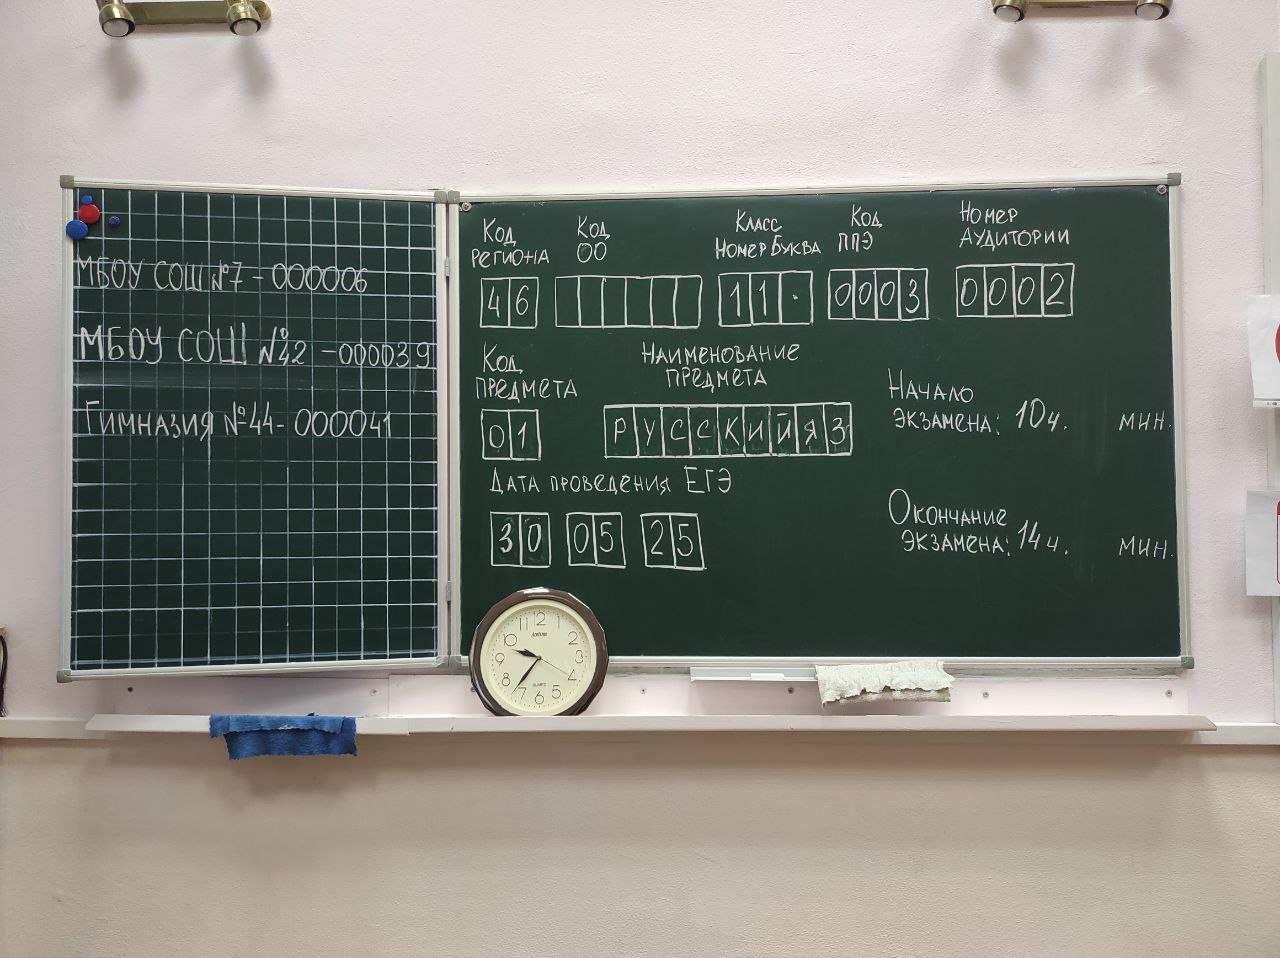 МБОУ СОШ №7 - 000006
МБОУ СОШ №42 - 000039
Гимназия №44 - 000041
Код региона
Код ОО
Класс
Номер Буква
Код ППЭ
Номер аудитории
46
11.
0003
0002
Код предмета
Наименование предмета
01
РУССКИЙЯЗ
Начало
экзамена: 10ч. мин.
Дата проведения ЕГЭ
30 05 25
Окончание
экзамена: 14ч. мин.
12
1
2
3
4
5
6
7
8
9
10
11
QUARTZ